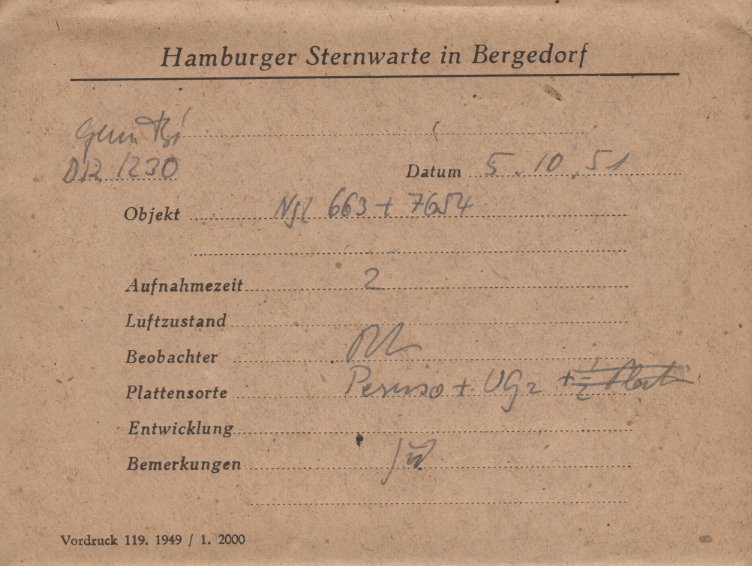 Hamburger Sternwarte in Bergedorf
Datum 5.10.51
Objekt 663 + 7654
Aufnahmezeit 2
Luftzustand
Beobachter
Plattensorte + UG2 + 1/2
Entwicklung
Bemerkungen
Vordruck 119. 1949 / 1. 2000